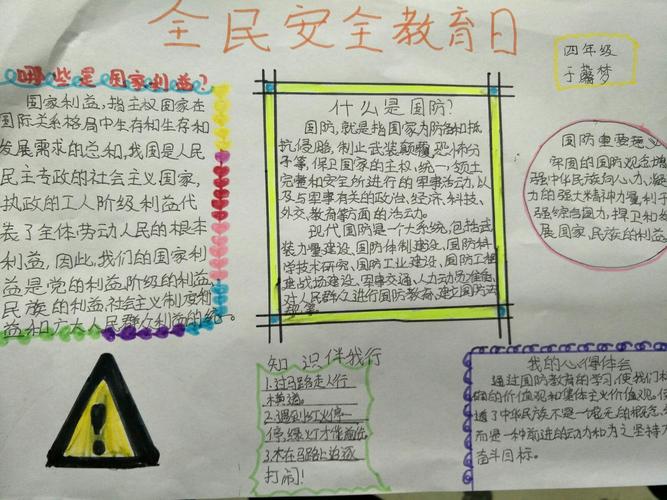 全民安全教育日
四年级
于馨梦
哪些是国家利益？
国家利益，指主权国家在
国际关系格局中生存和生存和
发展需求的总和，我国是人民
民主专政的社会主义国家，
执政的工人阶级，利益代
表了全体劳动人民的根本
利益，因此，我们的国家利
益是党的利益，阶级的利益
民族的利益，社会主义制度的利
益和广大人民群众利益的统一。
什么是国防？
国防，就是指国家为防备和抵
抗侵略，制止武装颠覆，恐怖分
子等，保卫国家的主权、统一、领土
完整和安全所进行的军事活动，以
及与军事有关的政治、经济、科技、
外交、教育等方面的活动。
现代国防是一个大系统，包括武
装力量建设、国防体制建设、国防科
学技术研究、国防工业建设、国防工程
建战场建设、军事交通、人力动员准备、
对人民群众进行国防教育、建立国防
国防重要意义
牢固的国防观念增
强中华民族向心力、凝
力的强大精神力量，利于
强综合国力，捍卫和发
展国家、民族的利益
知识伴我行
1.过马路走人行
横道。
2.遇到红灯停一
停，绿灯才能前行
3.不在马路上追逐
打闹！
我的心得体会
通过国防教育的学习，使我们树
确的价值观和集体主义价值观。
透了中华民族不是一
而是一种前进的动力和为之坚持不
奋斗目标。